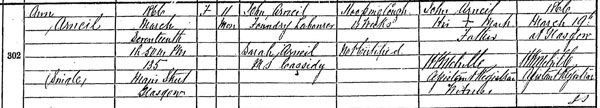 Ann
Arneil
(Single)
302
1860
March
Seventeenth
1h. 50m PM
135
Main Street
Glasgow
F
11
Mon
John Arneil
Foundry Labourer
Sarah Arneil
M.S. Cassidy
Hooping Cough
Weeks
Not Certified
John Arneil
His + Mark
Father
Assistant Registrar
Witness
1860
March 19th
at Glasgow
Assistant Registrar